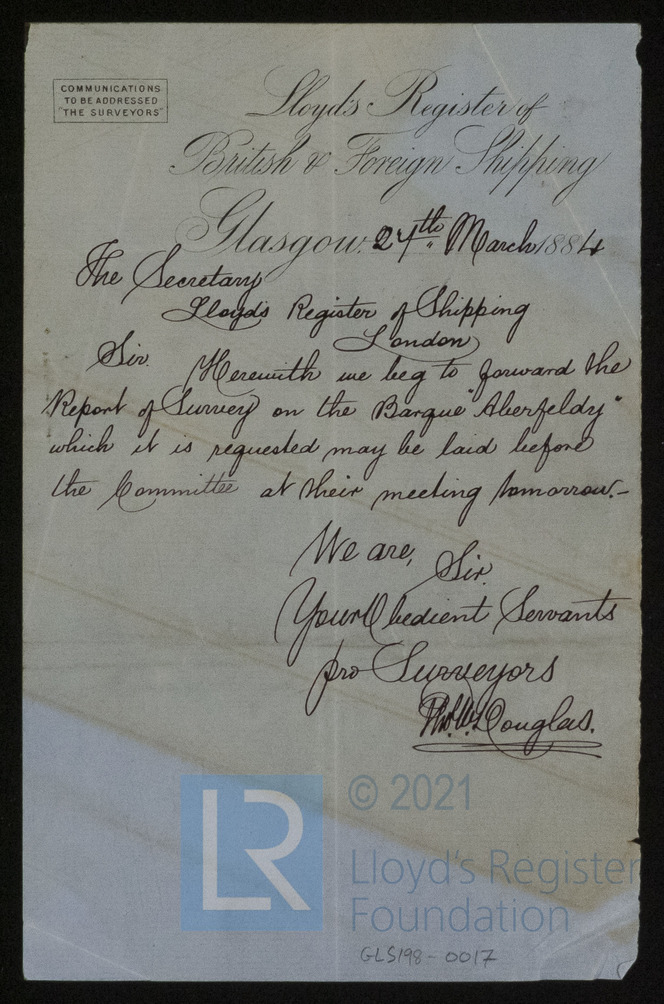 COMMUNICATIONS
TO BE ADDRESSED
"THE SURVEYORS"
Lloyd's Register of
British & Foreign Shipping
Glasgow. 24th March 1884
The Secretary
Lloyd's Register of Shipping
London
Sir. Herewith we beg to forward the
Report of Survey on the Barque "Aberfeldy"
which it is requested may be laid before
the Committee at their meeting tomorrow.-
We are, Sir.
Your Obedient Servants
pro Surveyors
Douglas.
LR
© 2021
Lloyd's Register
Foundation
GLS198-0017